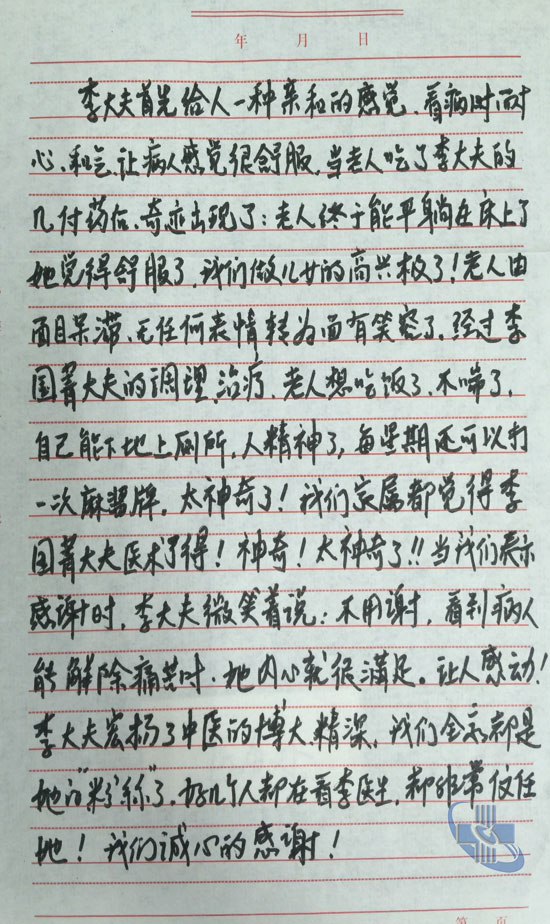 年 月 日
李大夫首先给人一种亲和的感觉、看病时耐
心、和气、让病人感觉很舒服,当老人吃了李大夫的
几付药后、奇迹出现了:老人终于能平躺在床上了
她觉得舒服了,我们做儿女的高兴极了!老人由
面目呆滞、无任何表情转为面有笑容了,经过李
国菁大夫的调理、治疗、老人想吃饭了、不喘了,
自己能下地上厕所,人精神了,每星期还可以打
一次麻酱牌,太神奇了!我们家属都觉得李
国菁大夫医术了得!神奇!太神奇了!!当我们表示
感谢时,李大夫微笑着说:不用谢,看到病人
能解除痛苦时、她内心就很满足。让人感动!
李大夫宏扬了中医的博大精深,我们全家都是
她的"粉丝"了,好几个人都在看李医生,都非常信任
她!我们诚心的感谢!
第 页